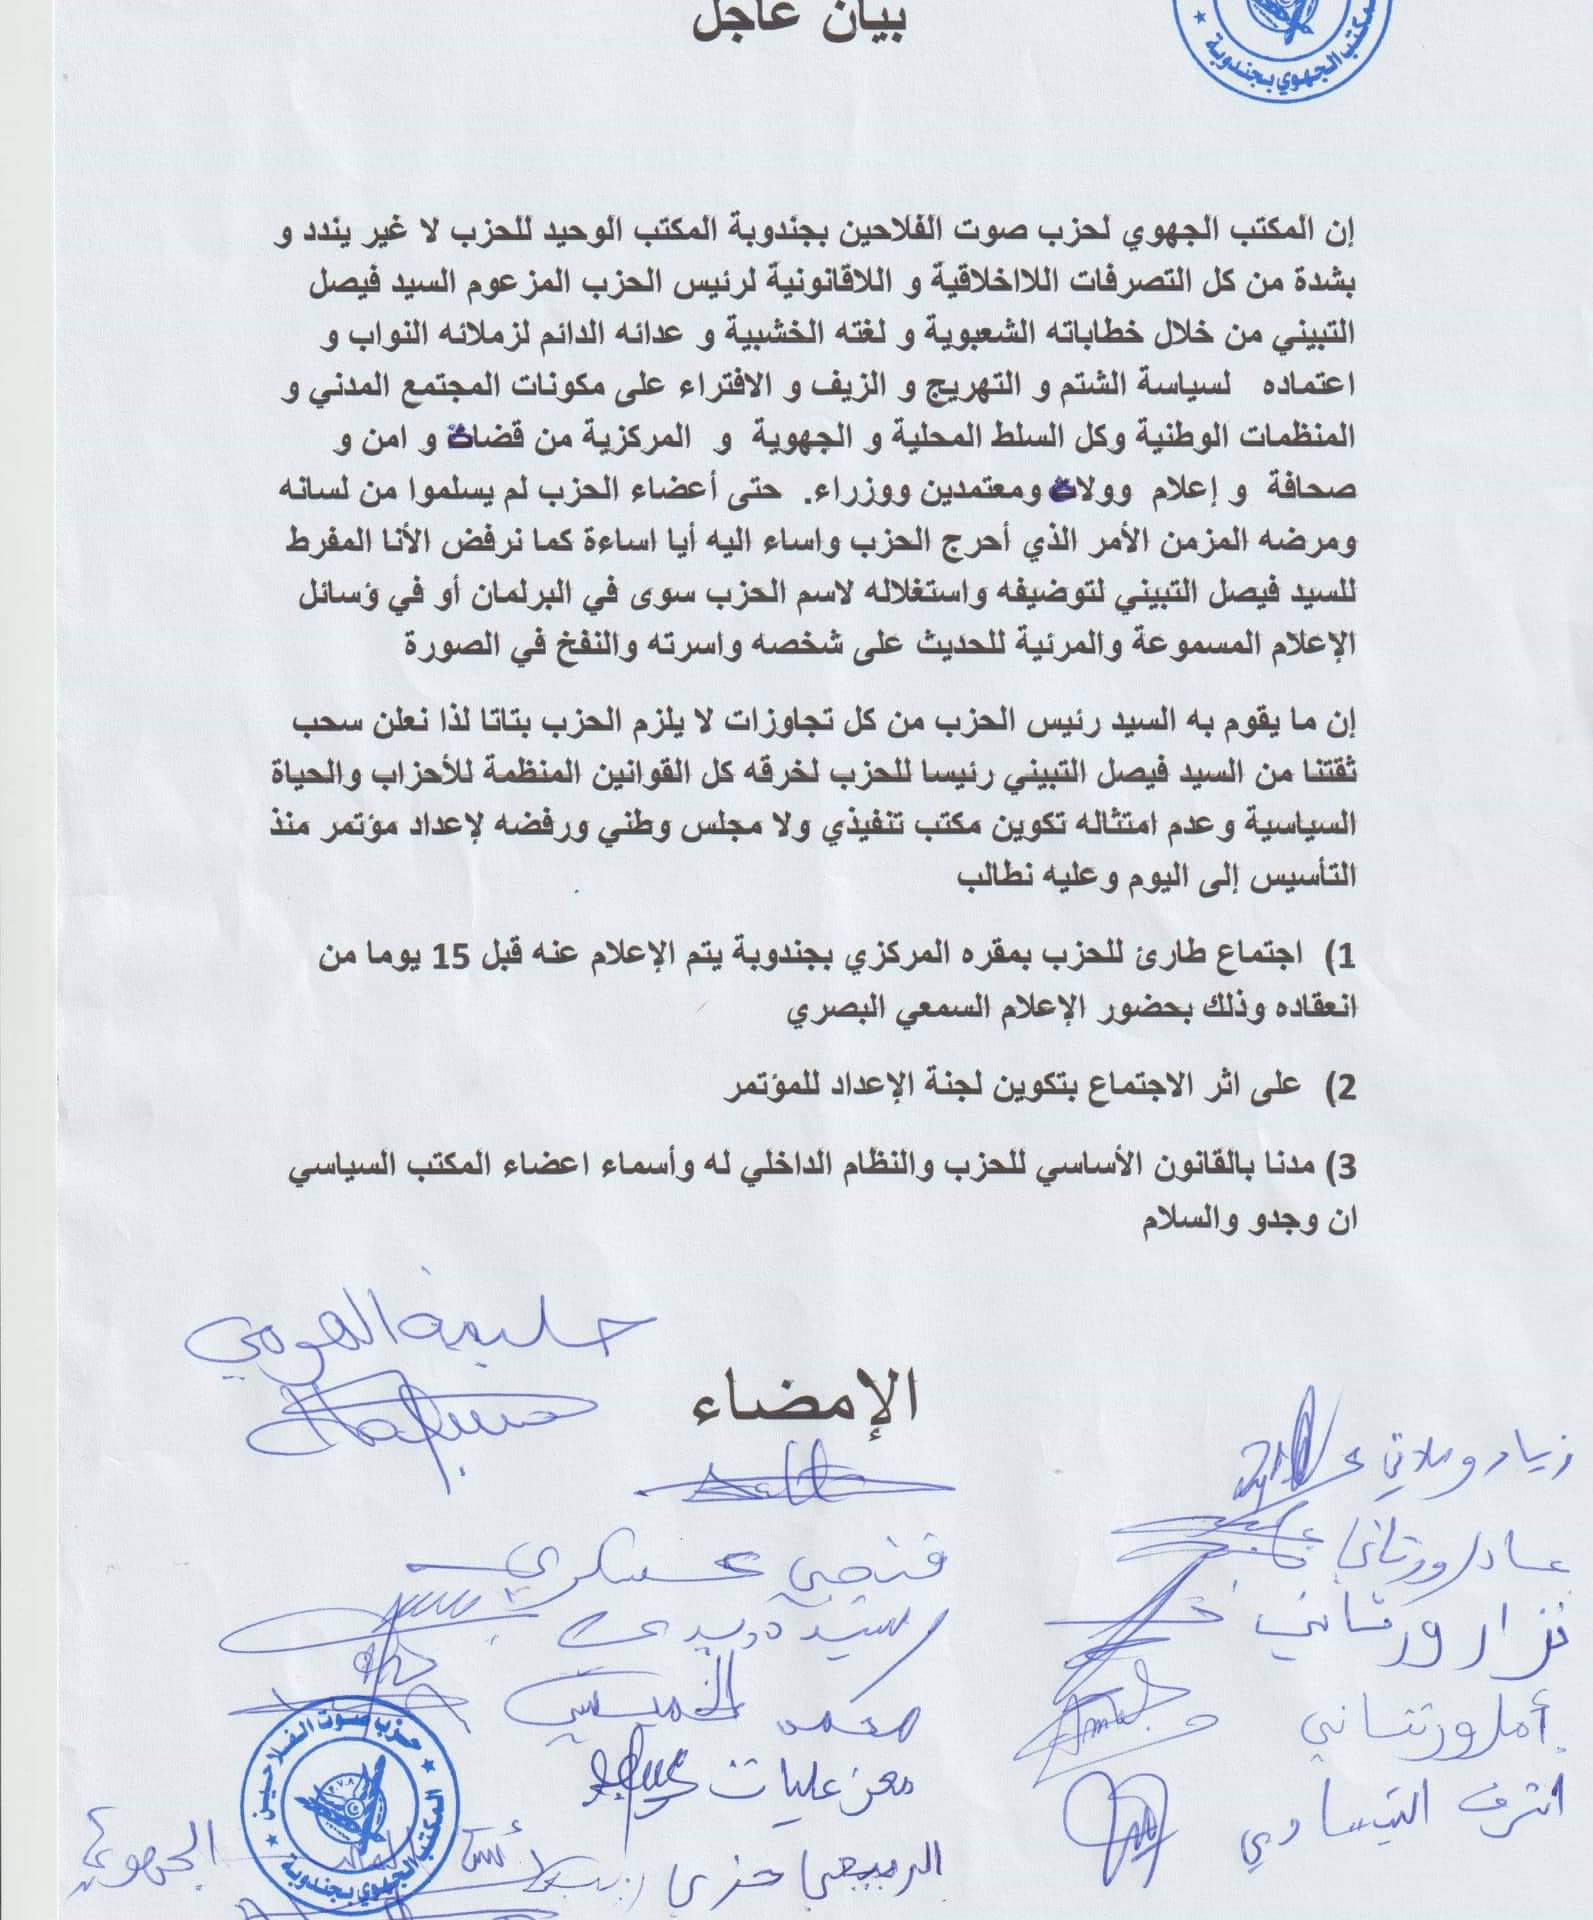 بيان عاجل
المكتب الجهوي بجندوبة
إن المكتب الجهوي لحزب صوت الفلاحين بجندوبة المكتب الوحيد للحزب لا غير يندد و
بشدة من كل التصرفات اللااخلاقية و اللاقانونية لرئيس الحزب المزعوم السيد فيصل
التبيني من خلال خطاباته الشعبوية و لغته الخشبية و عدائه الدائم لزملائه النواب و
اعتماده لسياسة الشتم و التهريج و الزيف و الافتراء على مكونات المجتمع المدني و
المنظمات الوطنية وكل السلط المحلية و الجهوية و المركزية من قضاة و امن و
صحافة و إعلام وولاة ومعتمدين ووزراء. حتى أعضاء الحزب لم يسلموا من لسانه
ومرضه المزمن الأمر الذي أحرج الحزب واساء اليه أيا اساءة كما نرفض الأنا المفرط
للسيد فيصل التبيني لتوضيفه واستغلاله لاسم الحزب سوى في البرلمان أو في ؤسائل
الإعلام المسموعة والمرئية للحديث على شخصه واسرته والنفخ في الصورة
إن ما يقوم به السيد رئيس الحزب من كل تجاوزات لا يلزم الحزب بتاتا لذا نعلن سحب
ثقتنا من السيد فيصل التبيني رئيسا للحزب لخرقه كل القوانين المنظمة للأحزاب والحياة
السياسية وعدم امتثاله تكوين مكتب تنفيذي ولا مجلس وطني ورفضه لإعداد مؤتمر منذ
التأسيس إلى اليوم وعليه نطالب
1) اجتماع طارئ للحزب بمقره المركزي بجندوبة يتم الإعلام عنه قبل 15 يوما من
انعقاده وذلك بحضور الإعلام السمعي البصري
2) على اثر الاجتماع بتكوين لجنة الإعداد للمؤتمر
3) مدنا بالقانون الأساسي للحزب والنظام الداخلي له وأسماء اعضاء المكتب السياسي
ان وجدو والسلام
حليمة
الإمضاء
زياد ورتاني
عادل ورتاني
فتحي عسكري
نزار ورتاني
محمد الخميسي
أمل ورتتاني
معز عليات
اشرف العيساوي
الربيعي
الجهوي
حزب صوت الفلاحين
المكتب الجهوي بجندوبة